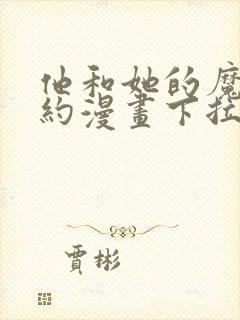 他和她的魔
約漫畫下拉
賈彬